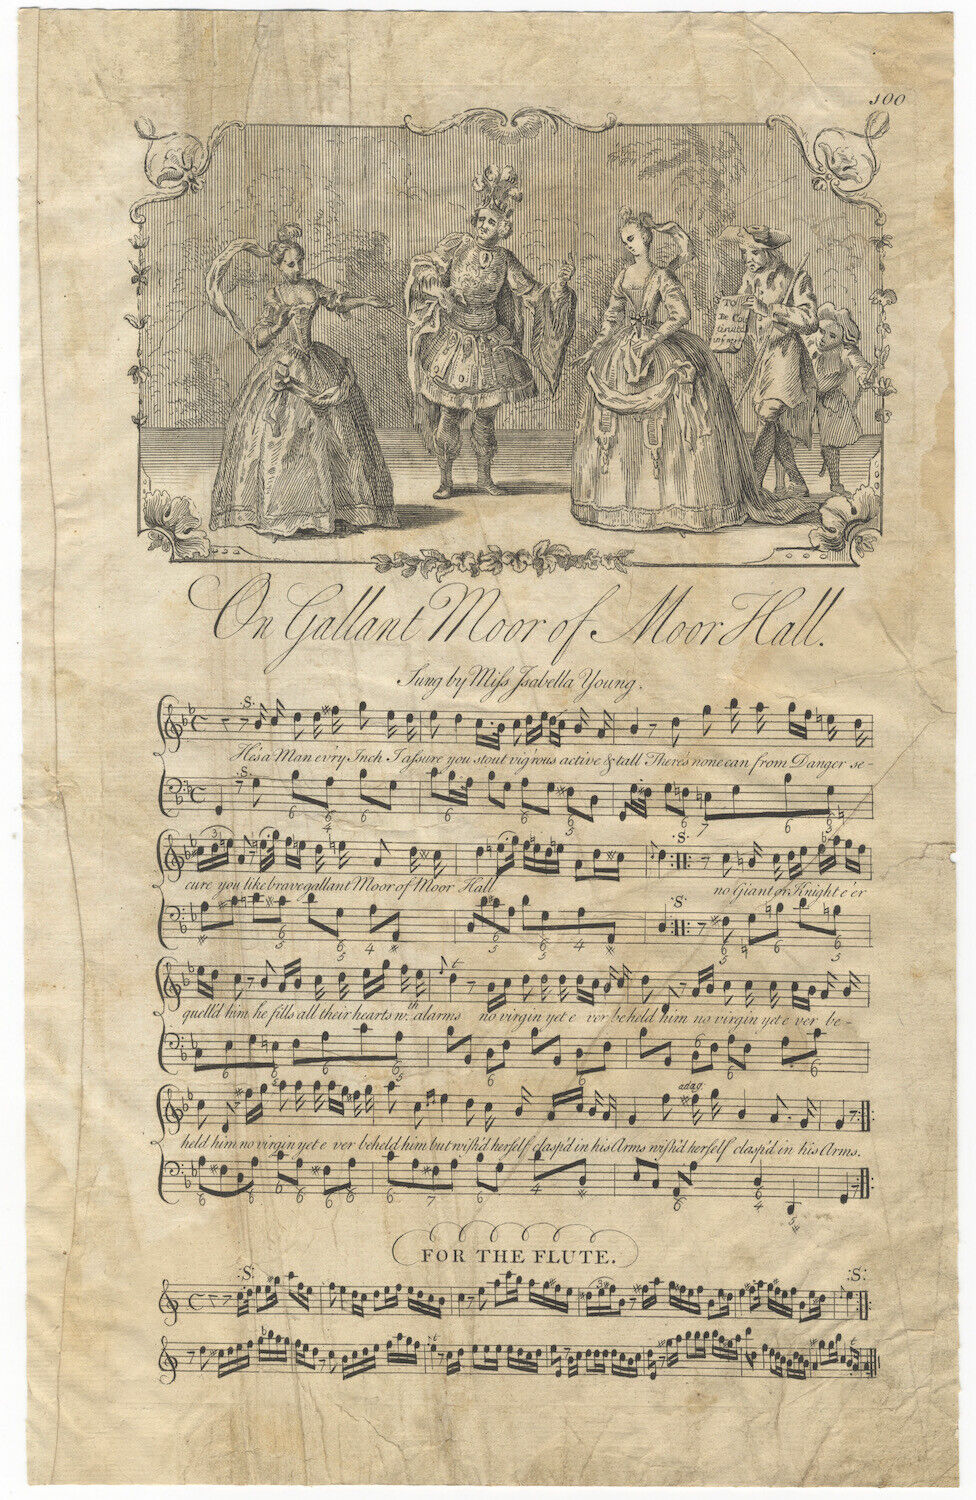 100
TO
Be Con
tinued
On Gallant Moor of Moor Hall.
Sung by Miſs Isabella Young.
:S:
He's a Man ev'ry Inch I aſsure you stout vig'rous active & tall There's none can from Danger se-
:S:
cure you like brave gallant Moor of Moor Hall :S: no Giant or Knight e'er
:S:
quell'd him he fills all their hearts w.th alarms no virgin yet e ver beheld him no virgin yet e ver be-
adag.
held him no virgin yet e ver beheld him but wiſh'd herſelf claſp'd in his Arms wiſh'd herſelf claſp'd in his Arms.
FOR THE FLUTE.
:S: :S: